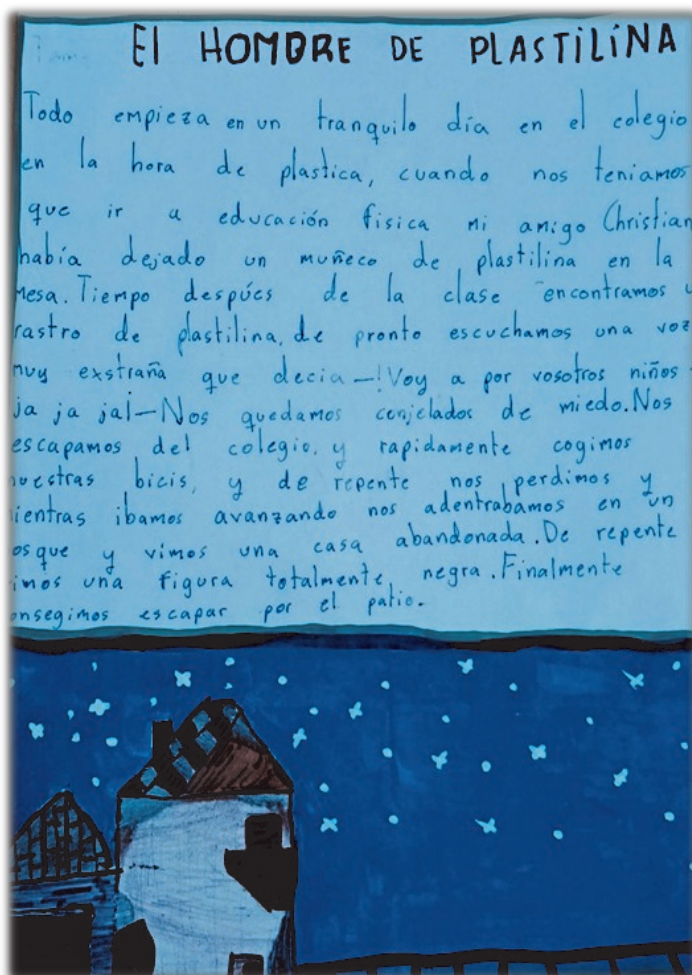 El HOMBRE DE PLASTILINA
Todo empieza en un tranquilo día en el colegio
en la hora de plastica, cuando nos teniamos
que ir a educación fisica mi amigo Christian
había dejado un muñeco de plastilina en la
mesa. Tiempo despúes de la clase encontramos u
rastro de plastilina, de pronto escuchamos una voz
muy exstraña que decia -!Voy a por vosotros niños
ja ja ja!- Nos quedamos conjelados de miedo. Nos
escapamos del colegio, y rapidamente cogimos
uestras bicis, y de repente nos perdimos y
ientras ibamos avanzando nos adentrabamos en un
osque y vimos una casa abandonada. De repente
imos una figura totalmente negra. Finalmente
onsegimos escapar por el patio.